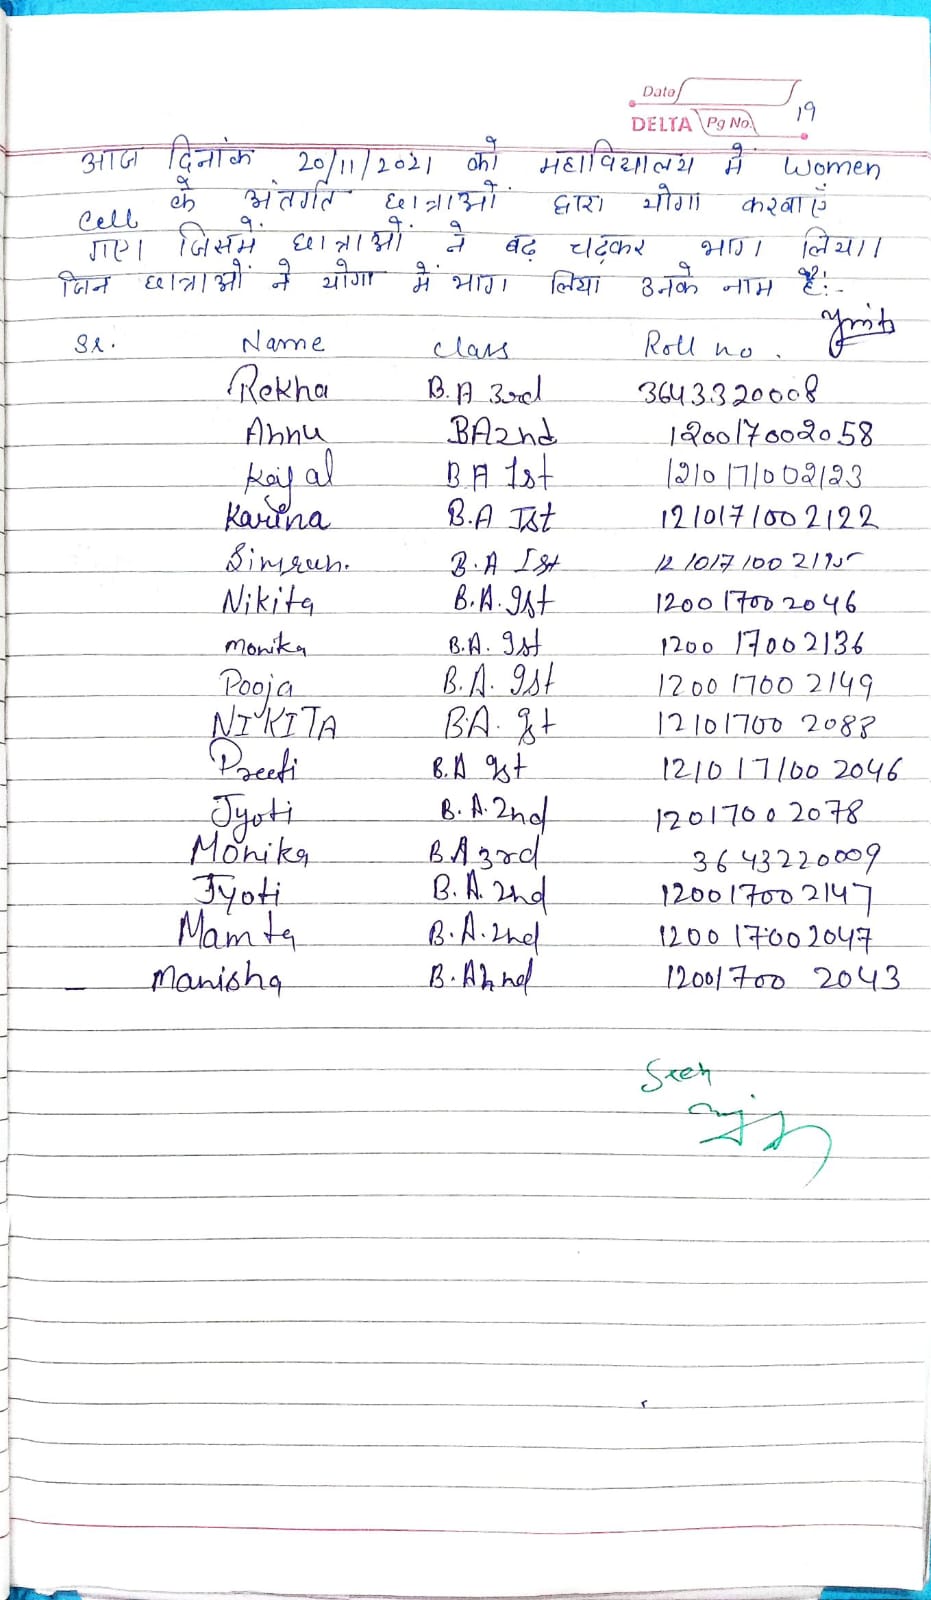 Date
19
DELTA Pg No.
आज दिनांक 20/11/2021 को महाविद्यालय में Women
Cell के अंतर्गत छात्राओं द्वारा योगा करवाएं
गए। जिसमें छात्राओं ने बढ़ चढ़कर भाग लिया।
जिन छात्राओं ने योगा में भाग लिया उनके नाम हैं:-
Sr. Name Class Roll no.
Rekha B.A 3rd 3643320008
Annu BA2nd 120017002058
Kajal BA 1st 121017002123
Karina B.A Ist 121017002122
Simran. B.A Ist
Nikita B.A. Ist 120017002046
Monika B.A. Ist 120017002136
Pooja B.A. Ist 120017002149
NIKITA B.A. Ist 121017002088
Preeti B.A Ist 121017002046
Jyoti B.A.2nd 12017002078
Monika BA3rd 3643220009
Jyoti B.A. 2nd 120017002147
Mamta B.A.2nd 120017002047
Manisha B.A2nd 120017002043
Seen